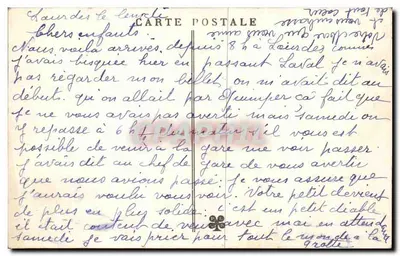 Lourdes le
CARTE POSTALE
Chers enfants
Nous voila arrivés depuis 8h à Lourdes comme
j'avais hier en passant Laval je n'avais
pas regarder mon billet on m'avait dit au
début qu'on allait par Quimper ca fait que
je ne vous avais pas averti mais samedi on
repasse à 6h si vous est
possible de venir à la gare me voir passer
j'avais dit au chef de gare de vous avertir
que nous avions passé je vous assure que
j'aurais voulu vous voir. Votre petit devient
de plus en plus solide c'est un petit diable
il était content de venir avec moi en attendant
samedi je vais prier pour tout le monde à la
grotte
Votre mère que vous aime
et vous embrasse
de tout coeur